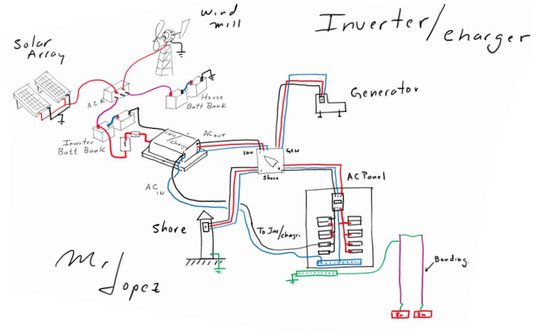 Inverter/charger
Wind
mill
Solar
Array
ACR
House
Batt Bank
Generator
Inverter
Batt Bank
Inv/
charger
AC out
Inv
GEN
Shore
AC
IN
AC Panel
Shore
To Inv/charger
Bonding
Mr Lopez